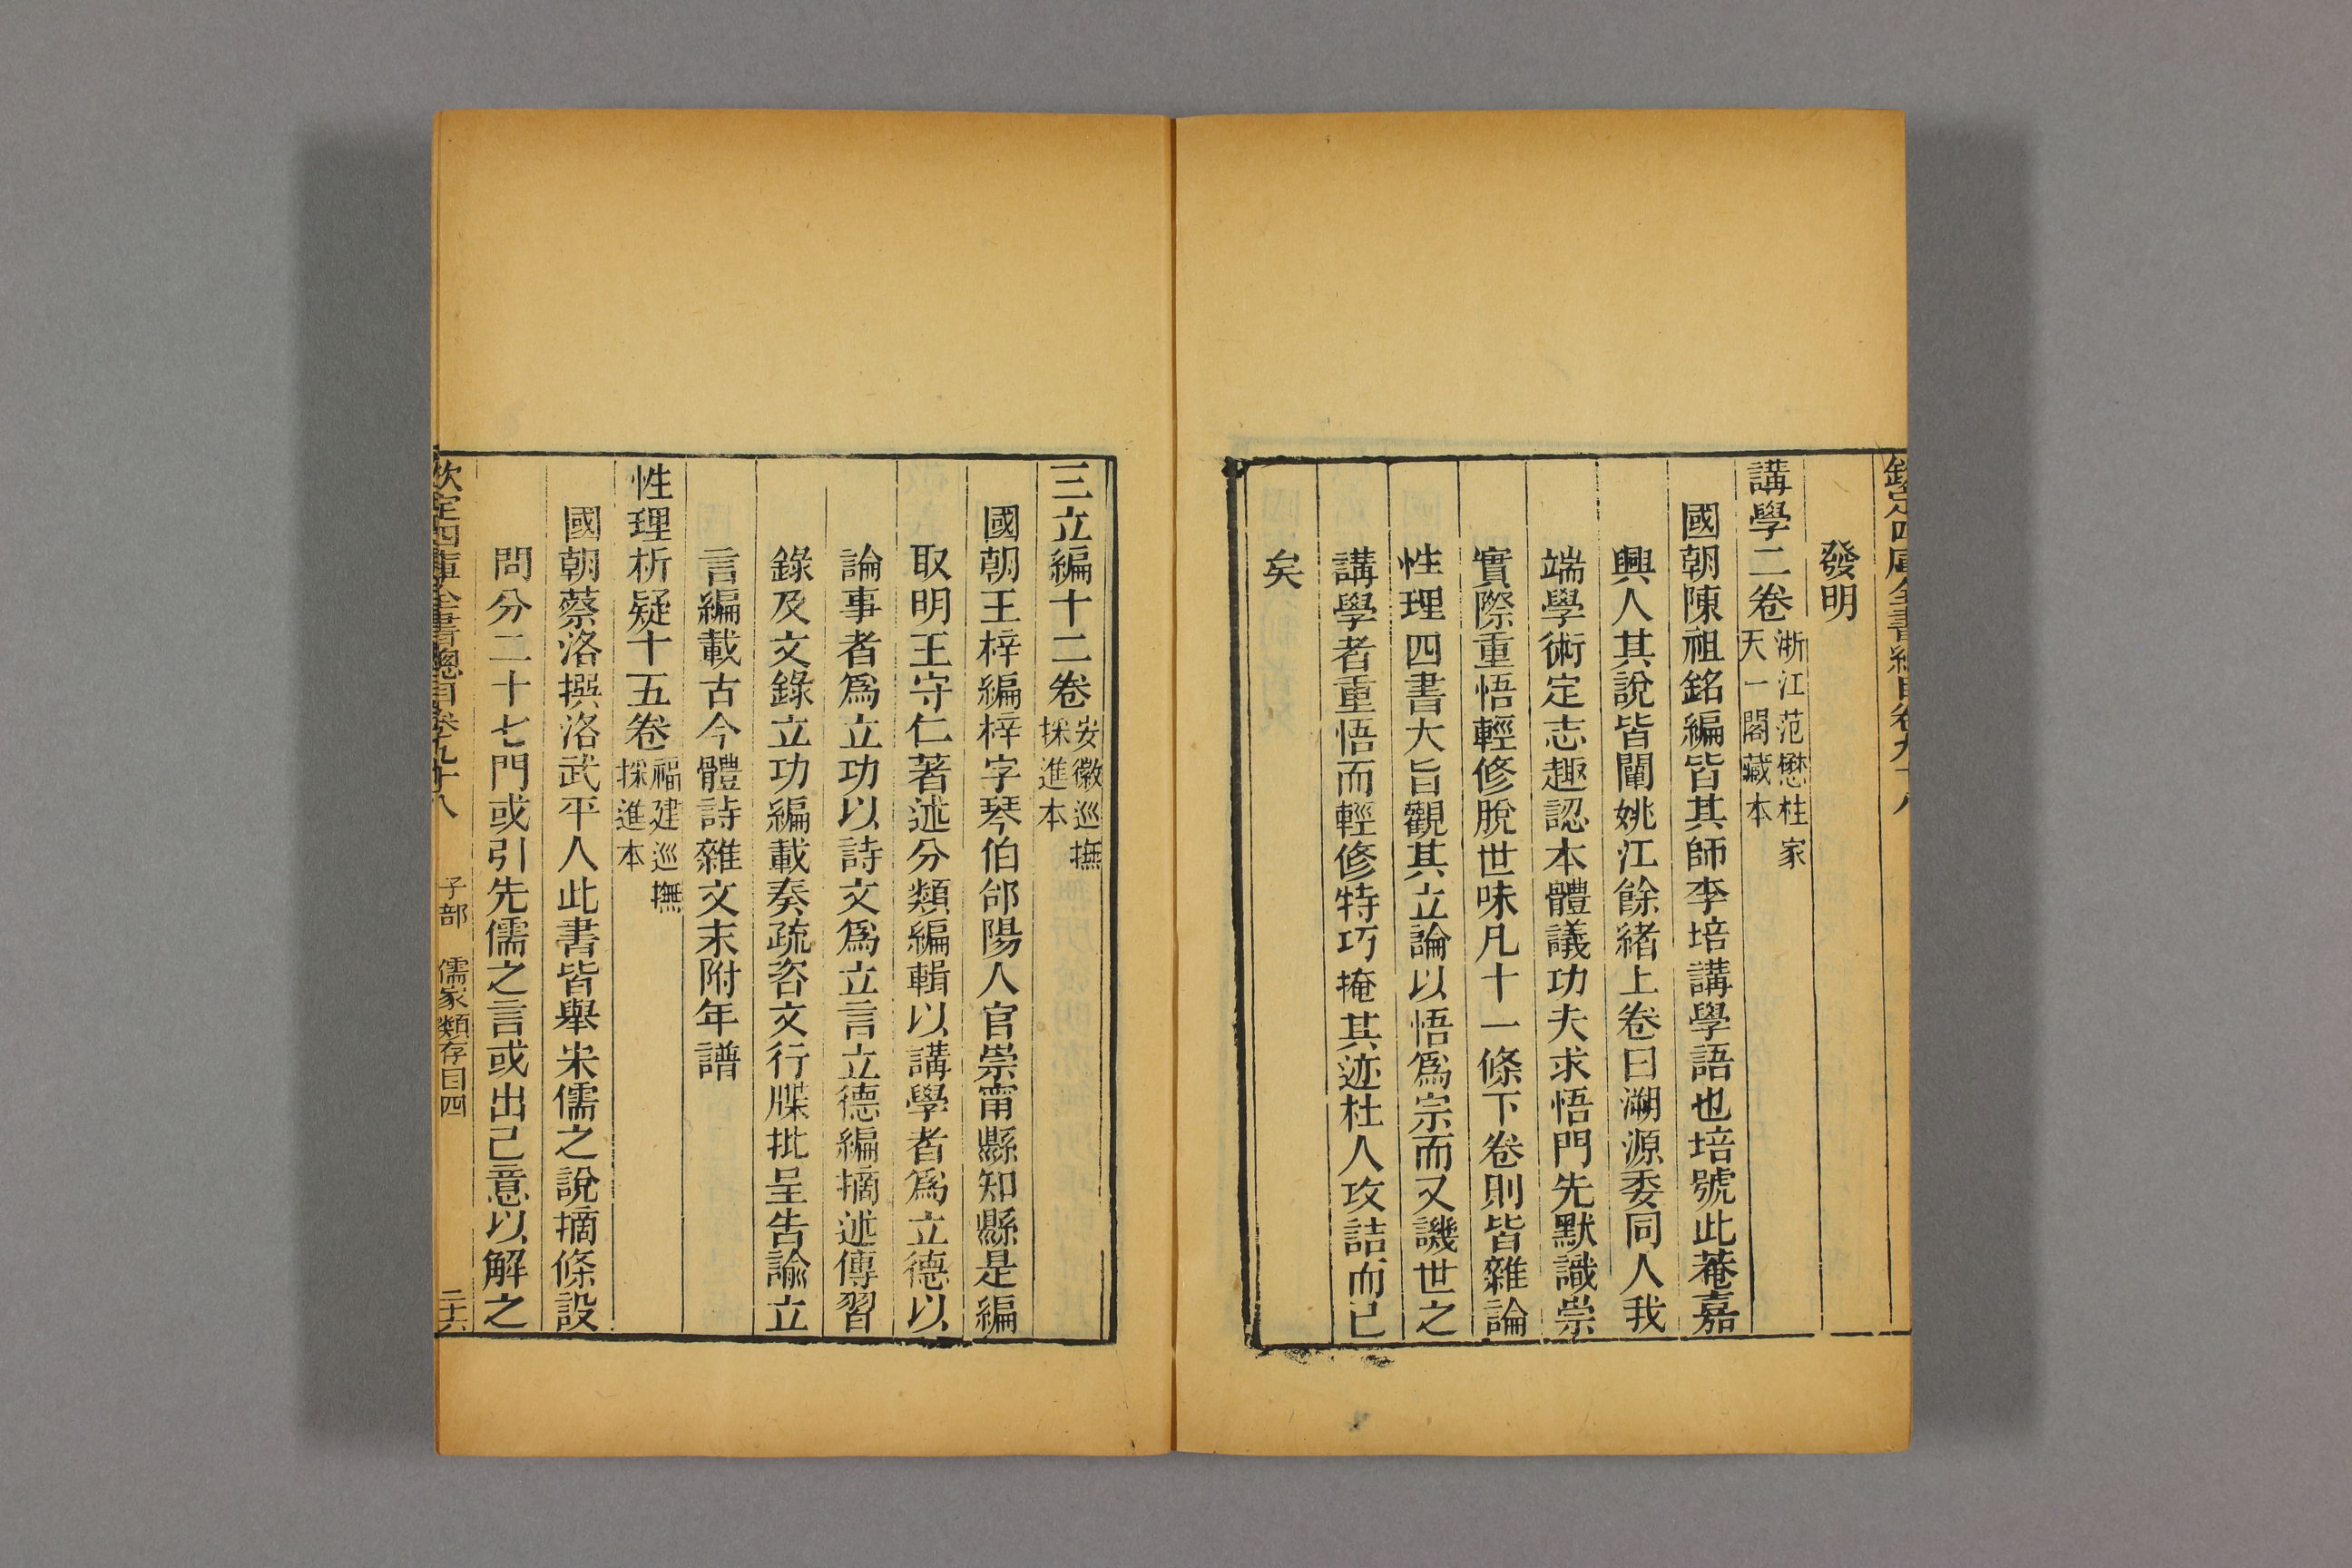 欽定四庫全書總目卷九十八
發明
講學二卷 浙江范懋柱家天一閣藏本
國朝陳祖銘編皆其師李培講學語也培號此菴嘉
興人其說皆闡姚江餘緒上卷曰溯源委同人我
端學術定志趣認本體議功夫求悟門先默識崇
實際重悟輕修脫世味凡十一條下卷則皆雜論
性理四書大旨觀其立論以悟爲宗而又譏世之
講學者重悟而輕修特巧掩其迹杜人攻詰而已
矣
三立編十二卷 安徽巡撫採進本
國朝王梓編梓字琴伯郃陽人官崇甯縣知縣是編
取明王守仁著述分類編輯以講學者爲立德以
論事者爲立功以詩文爲立言立德編摘述傳習
錄及文錄立功編載奏疏咨文行牒批呈告諭立
言編載古今體詩雜文末附年譜
性理析疑十五卷 福建巡撫採進本
國朝蔡洛撰洛武平人此書皆舉宋儒之說摘條設
問分二十七門或引先儒之言或出己意以解之
欽定四庫全書總目卷九十八 子部 儒家類存目四 二十六